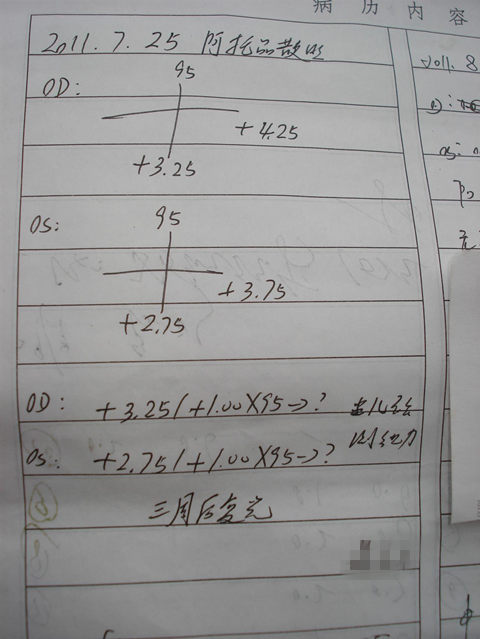 病历内容
2011.7.25 阿托品散瞳
OD:
95
+4.25
+3.25
OS:
95
+3.75
+2.75
OD: +3.25/+1.00X95→?
OS: +2.75/+1.00X95→?
三周后复光
2011.8